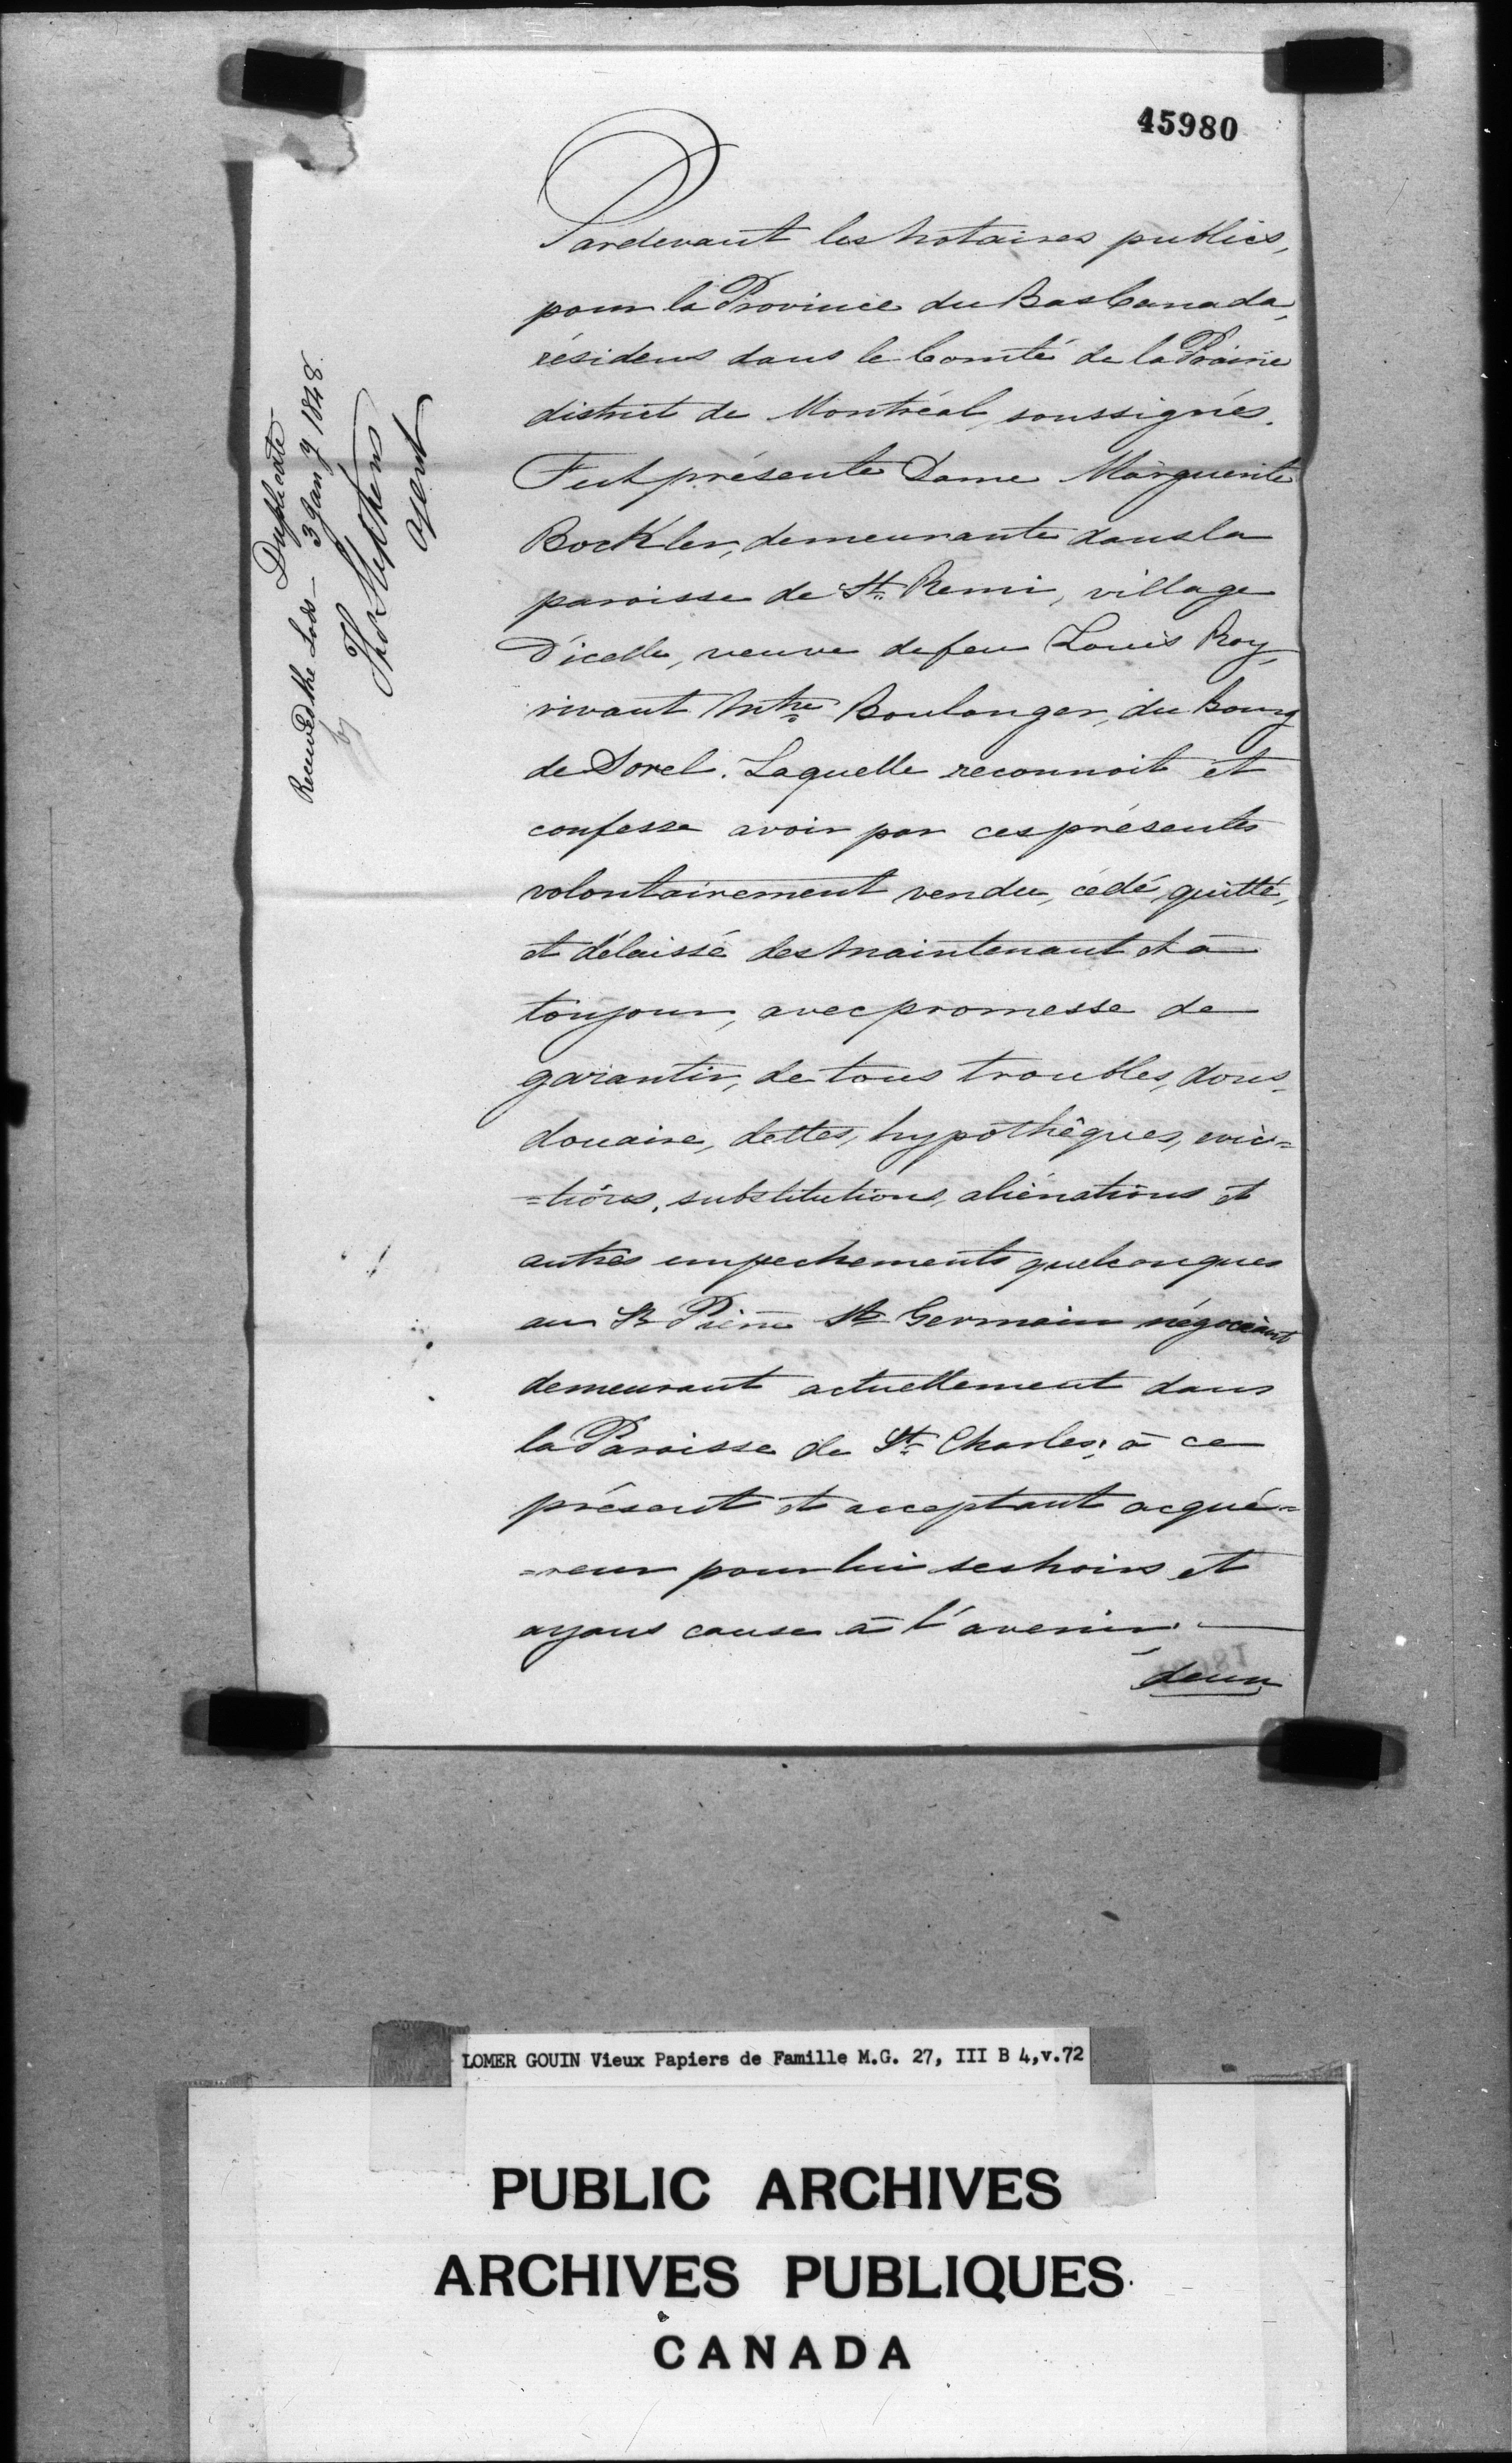 45980
Pardevant les Notaires publics,
pour la Province du Bas Canada,
résidens dans le Comté de la Prairie
district de Montréal, soussignés.
Fut présente Dame Marguerite
Bockler, demeurante dans la
paroisse de St. Remi, village
D'icelle, veuve de feu Louis Roy,
vivant Mtre Boulanger, du Bourg
de Sorel. Laquelle reconnoit et
confesse avoir par ces présentes
volontairement vendu, cédé, quitté,
et délaissé des maintenant et à
toujours, avec promesse de
garantir, de tous troubles, dons,
douaire, dettes, hypothêques, evic=
=tions, substitutions, aliénations et
autres empechements quelconques
au Sr Pierre St Germain négociant
demeurant actuellement dans
la Paroisse de St. Charles; à ce
présent et acceptant acqué=
=reur pour lui ses hoirs et
ayans cause à l'avenir.
deux
Duplicate
Received the Lods — 3 Jany 1848.
by Thos Stephens
agent
LOMER GOUIN Vieux Papiers de Famille M.G. 27, III B 4,v.72
PUBLIC ARCHIVES
ARCHIVES PUBLIQUES
CANADA